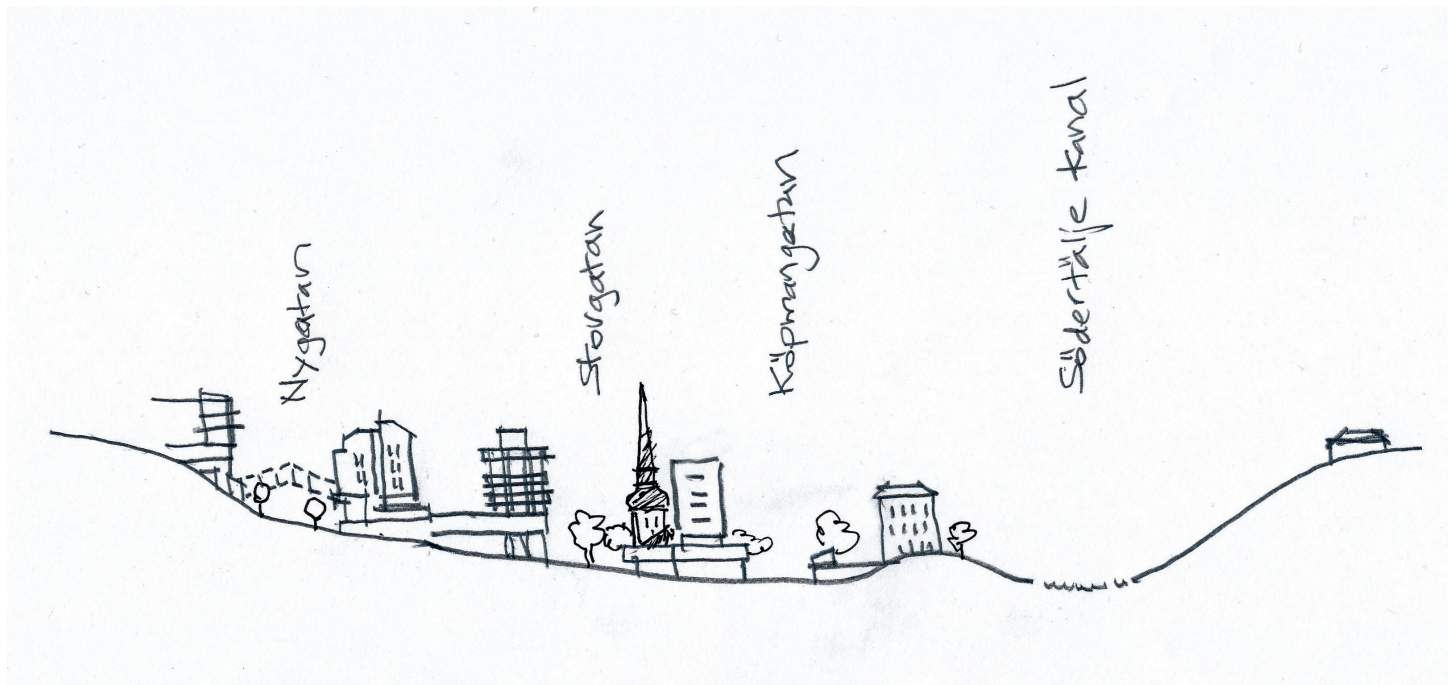 Nygatan
Storgatan
Köpmangatan
Södertälje kanal